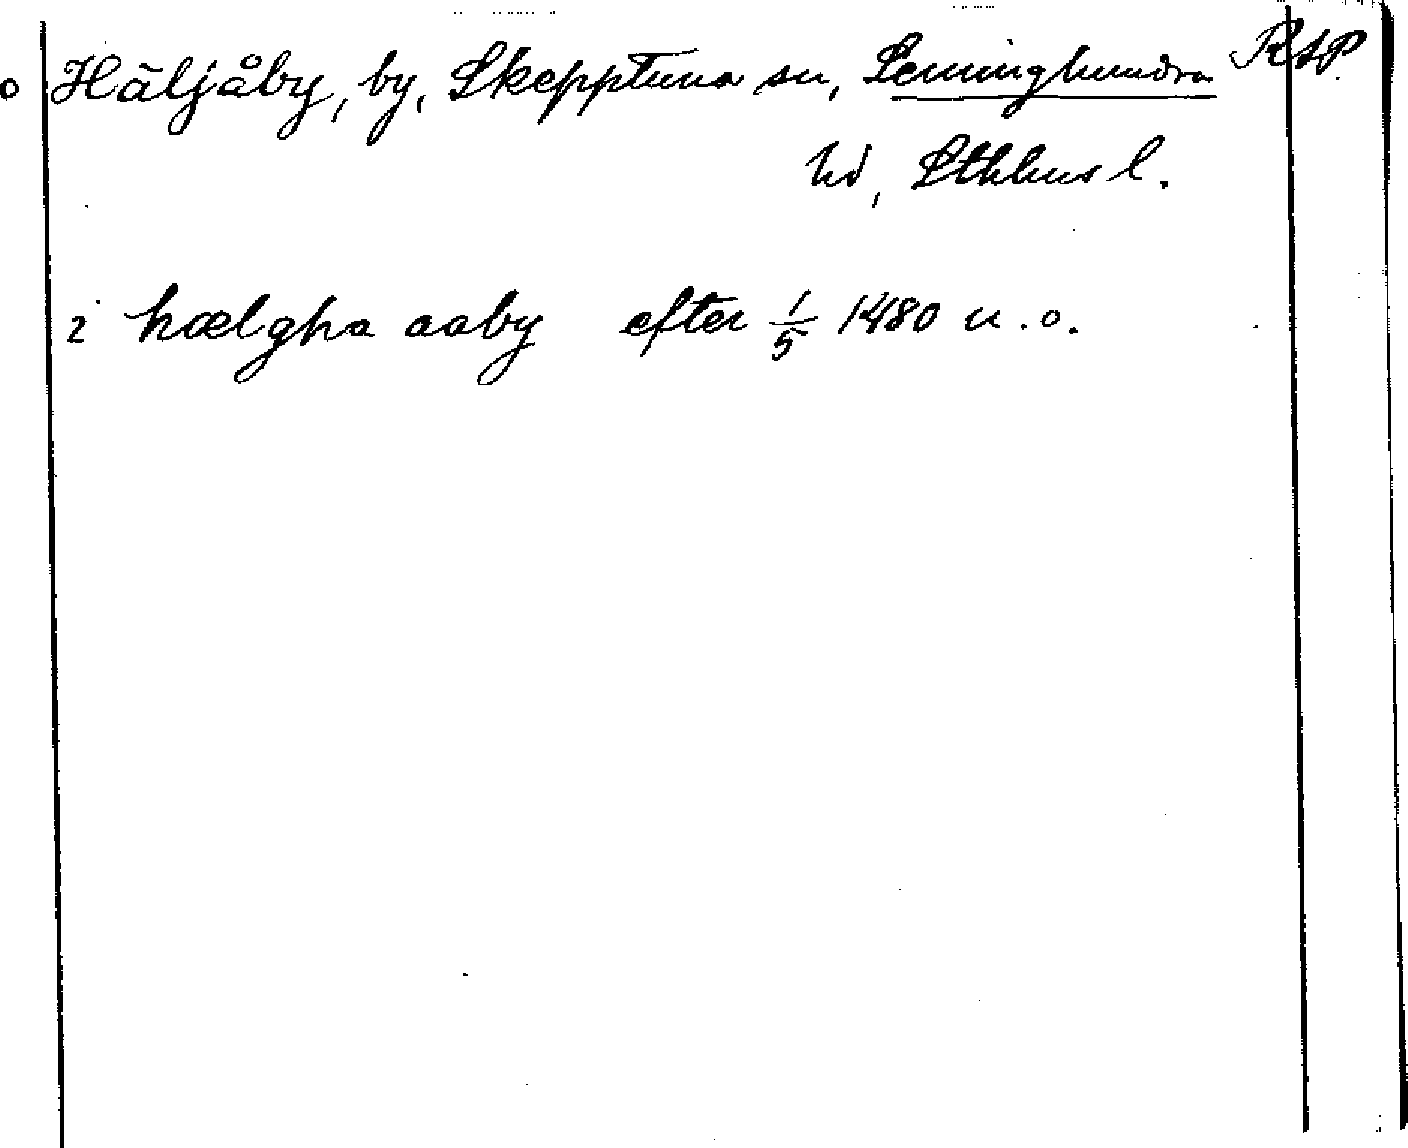 Häljåby, by, Skepptuna sn, Seminghundra RAP.
hd, Sthlms l.
i hælgha aaby efter 1/5 1480 u.o.